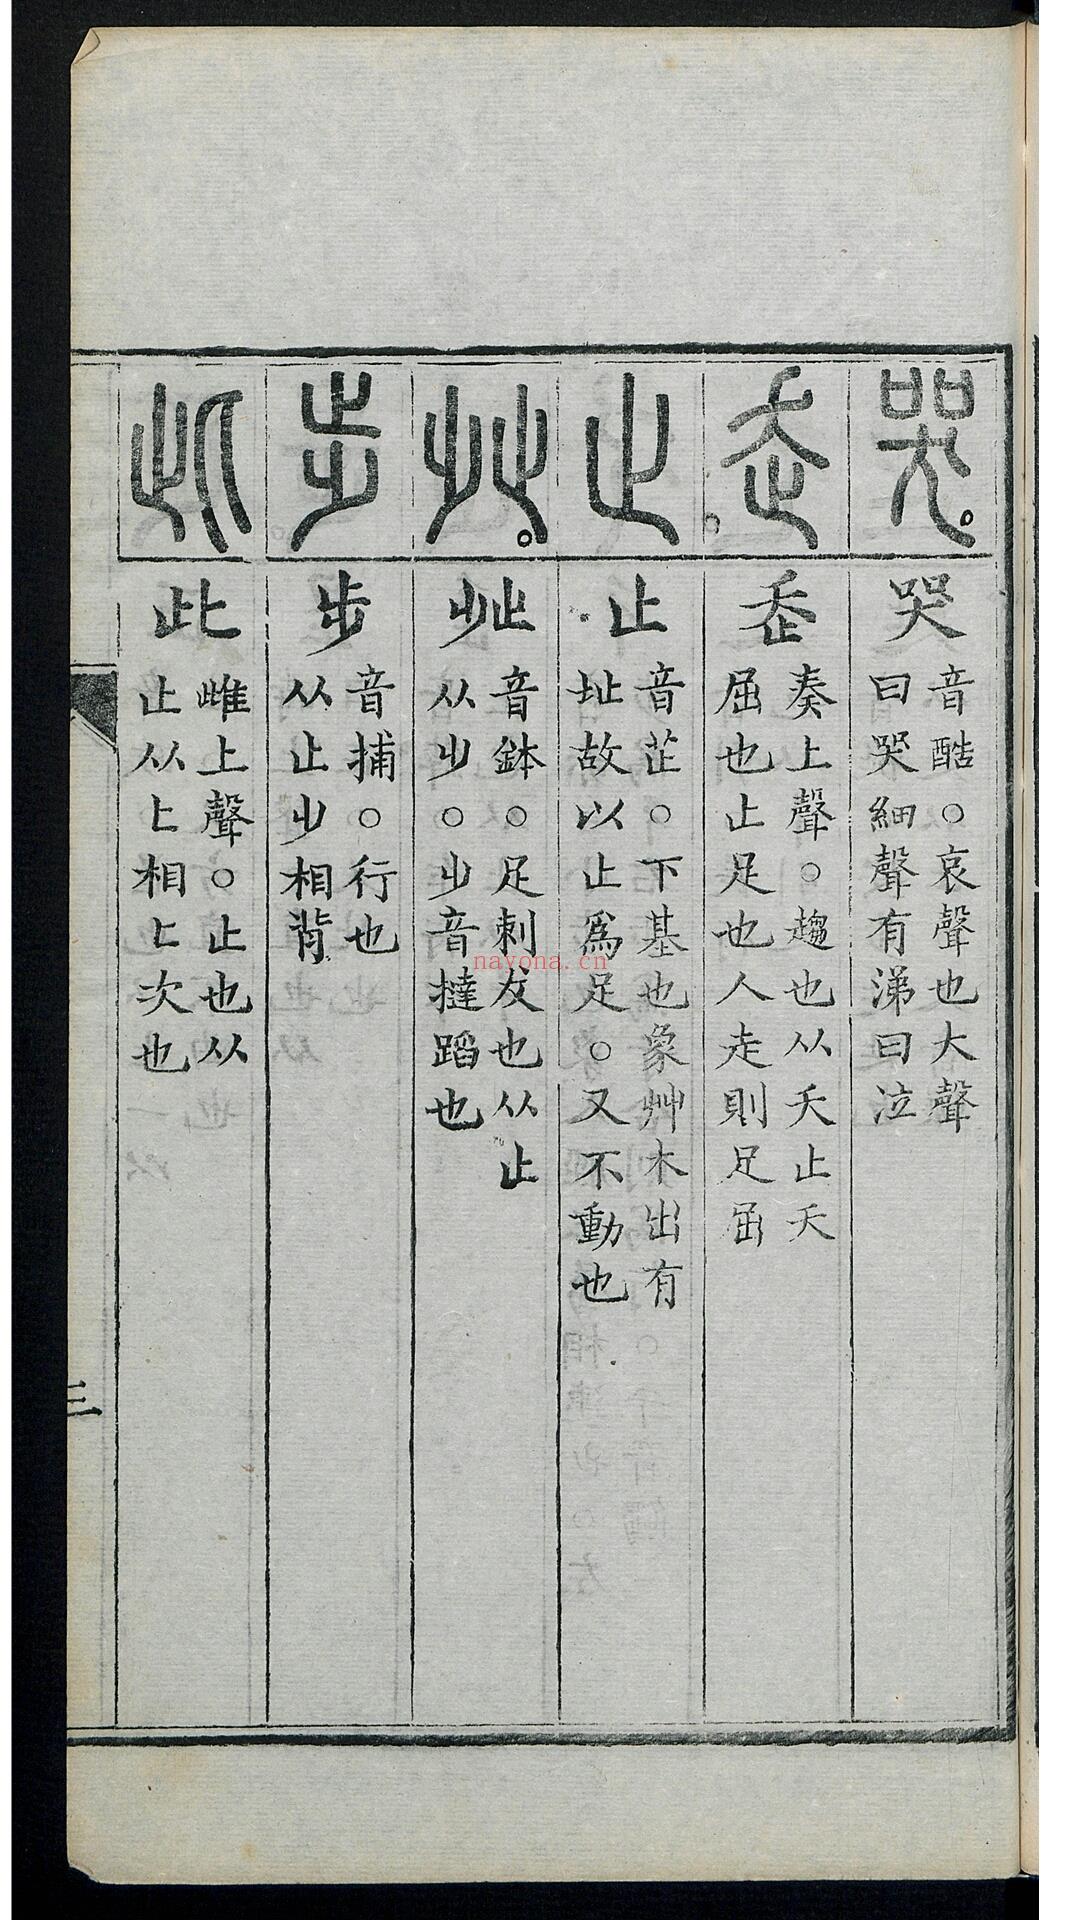 哭
音酷○哀聲也大聲
曰哭細聲有涕曰泣
奏上聲○趨也从夭止夭
屈也止足也人走則足屈
止
音芷○下基也象艸木出有
址故以止爲足○又不動也
癶
音鉢○足剌犮也从止
从𣥂○𣥂音撻蹈也
步
音捕○行也
从止𣥂相背
此
雌上聲○止也从
止从匕相匕次也
三
nayona.cn